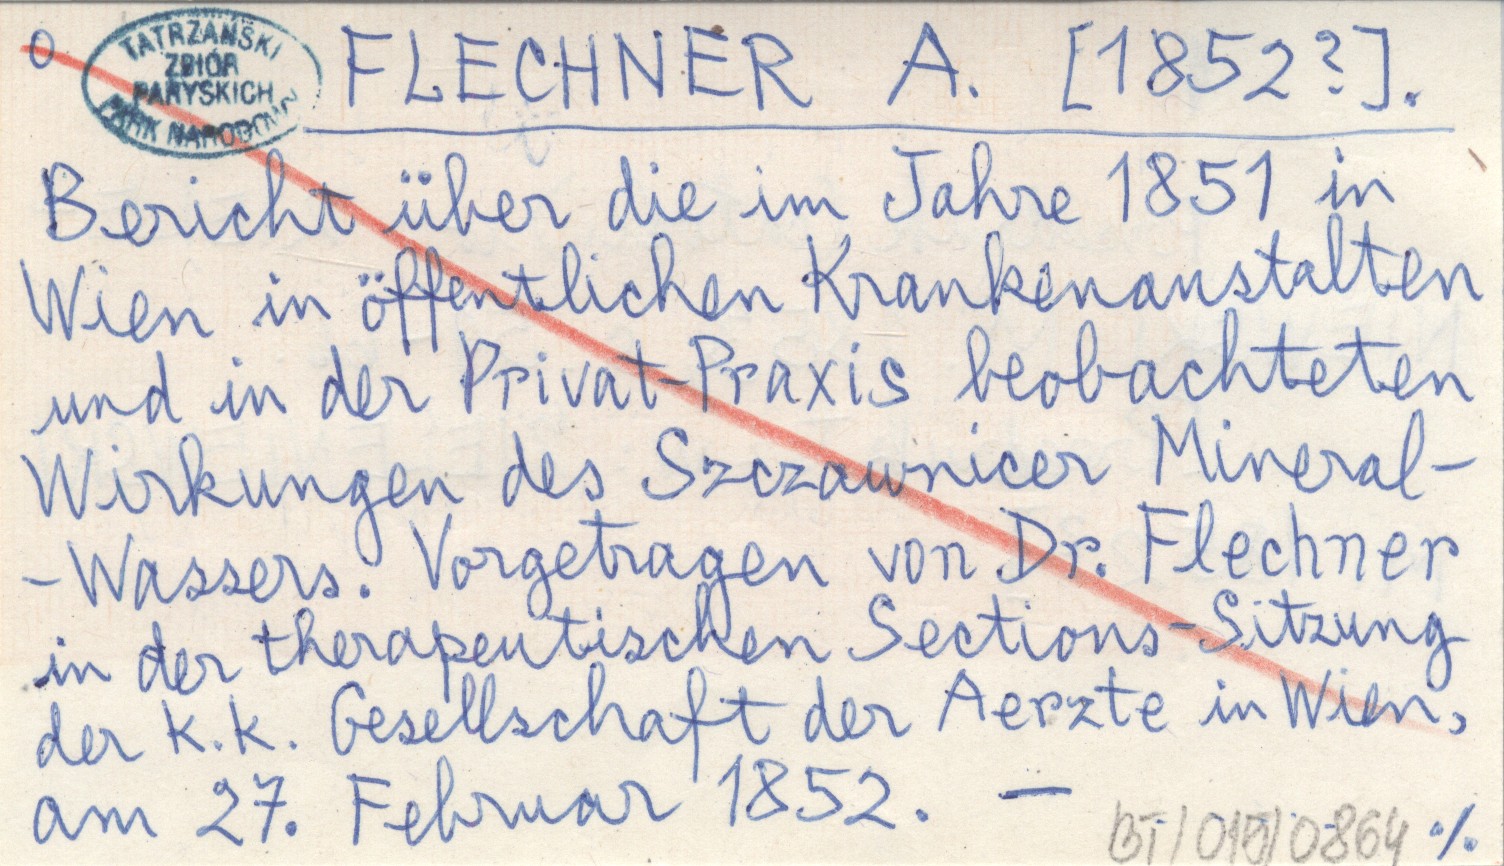 O
TATRZAŃSKI
ZBIÓR
PARYSKICH
PARK NARODOWY
FLECHNER A. [1852?].
Bericht über die im Jahre 1851 in
Wien in öffentlichen Krankenanstalten
und in der Privat-Praxis beobachteten
Wirkungen des Szczawnicer Mineral-
-Wassers. Vorgetragen von Dr. Flechner
in der therapeutischen Sections-Sitzung
der k.k. Gesellschaft der Aerzte in Wien,
am 27. Februar 1852. —
BT/015/0864 ·/.